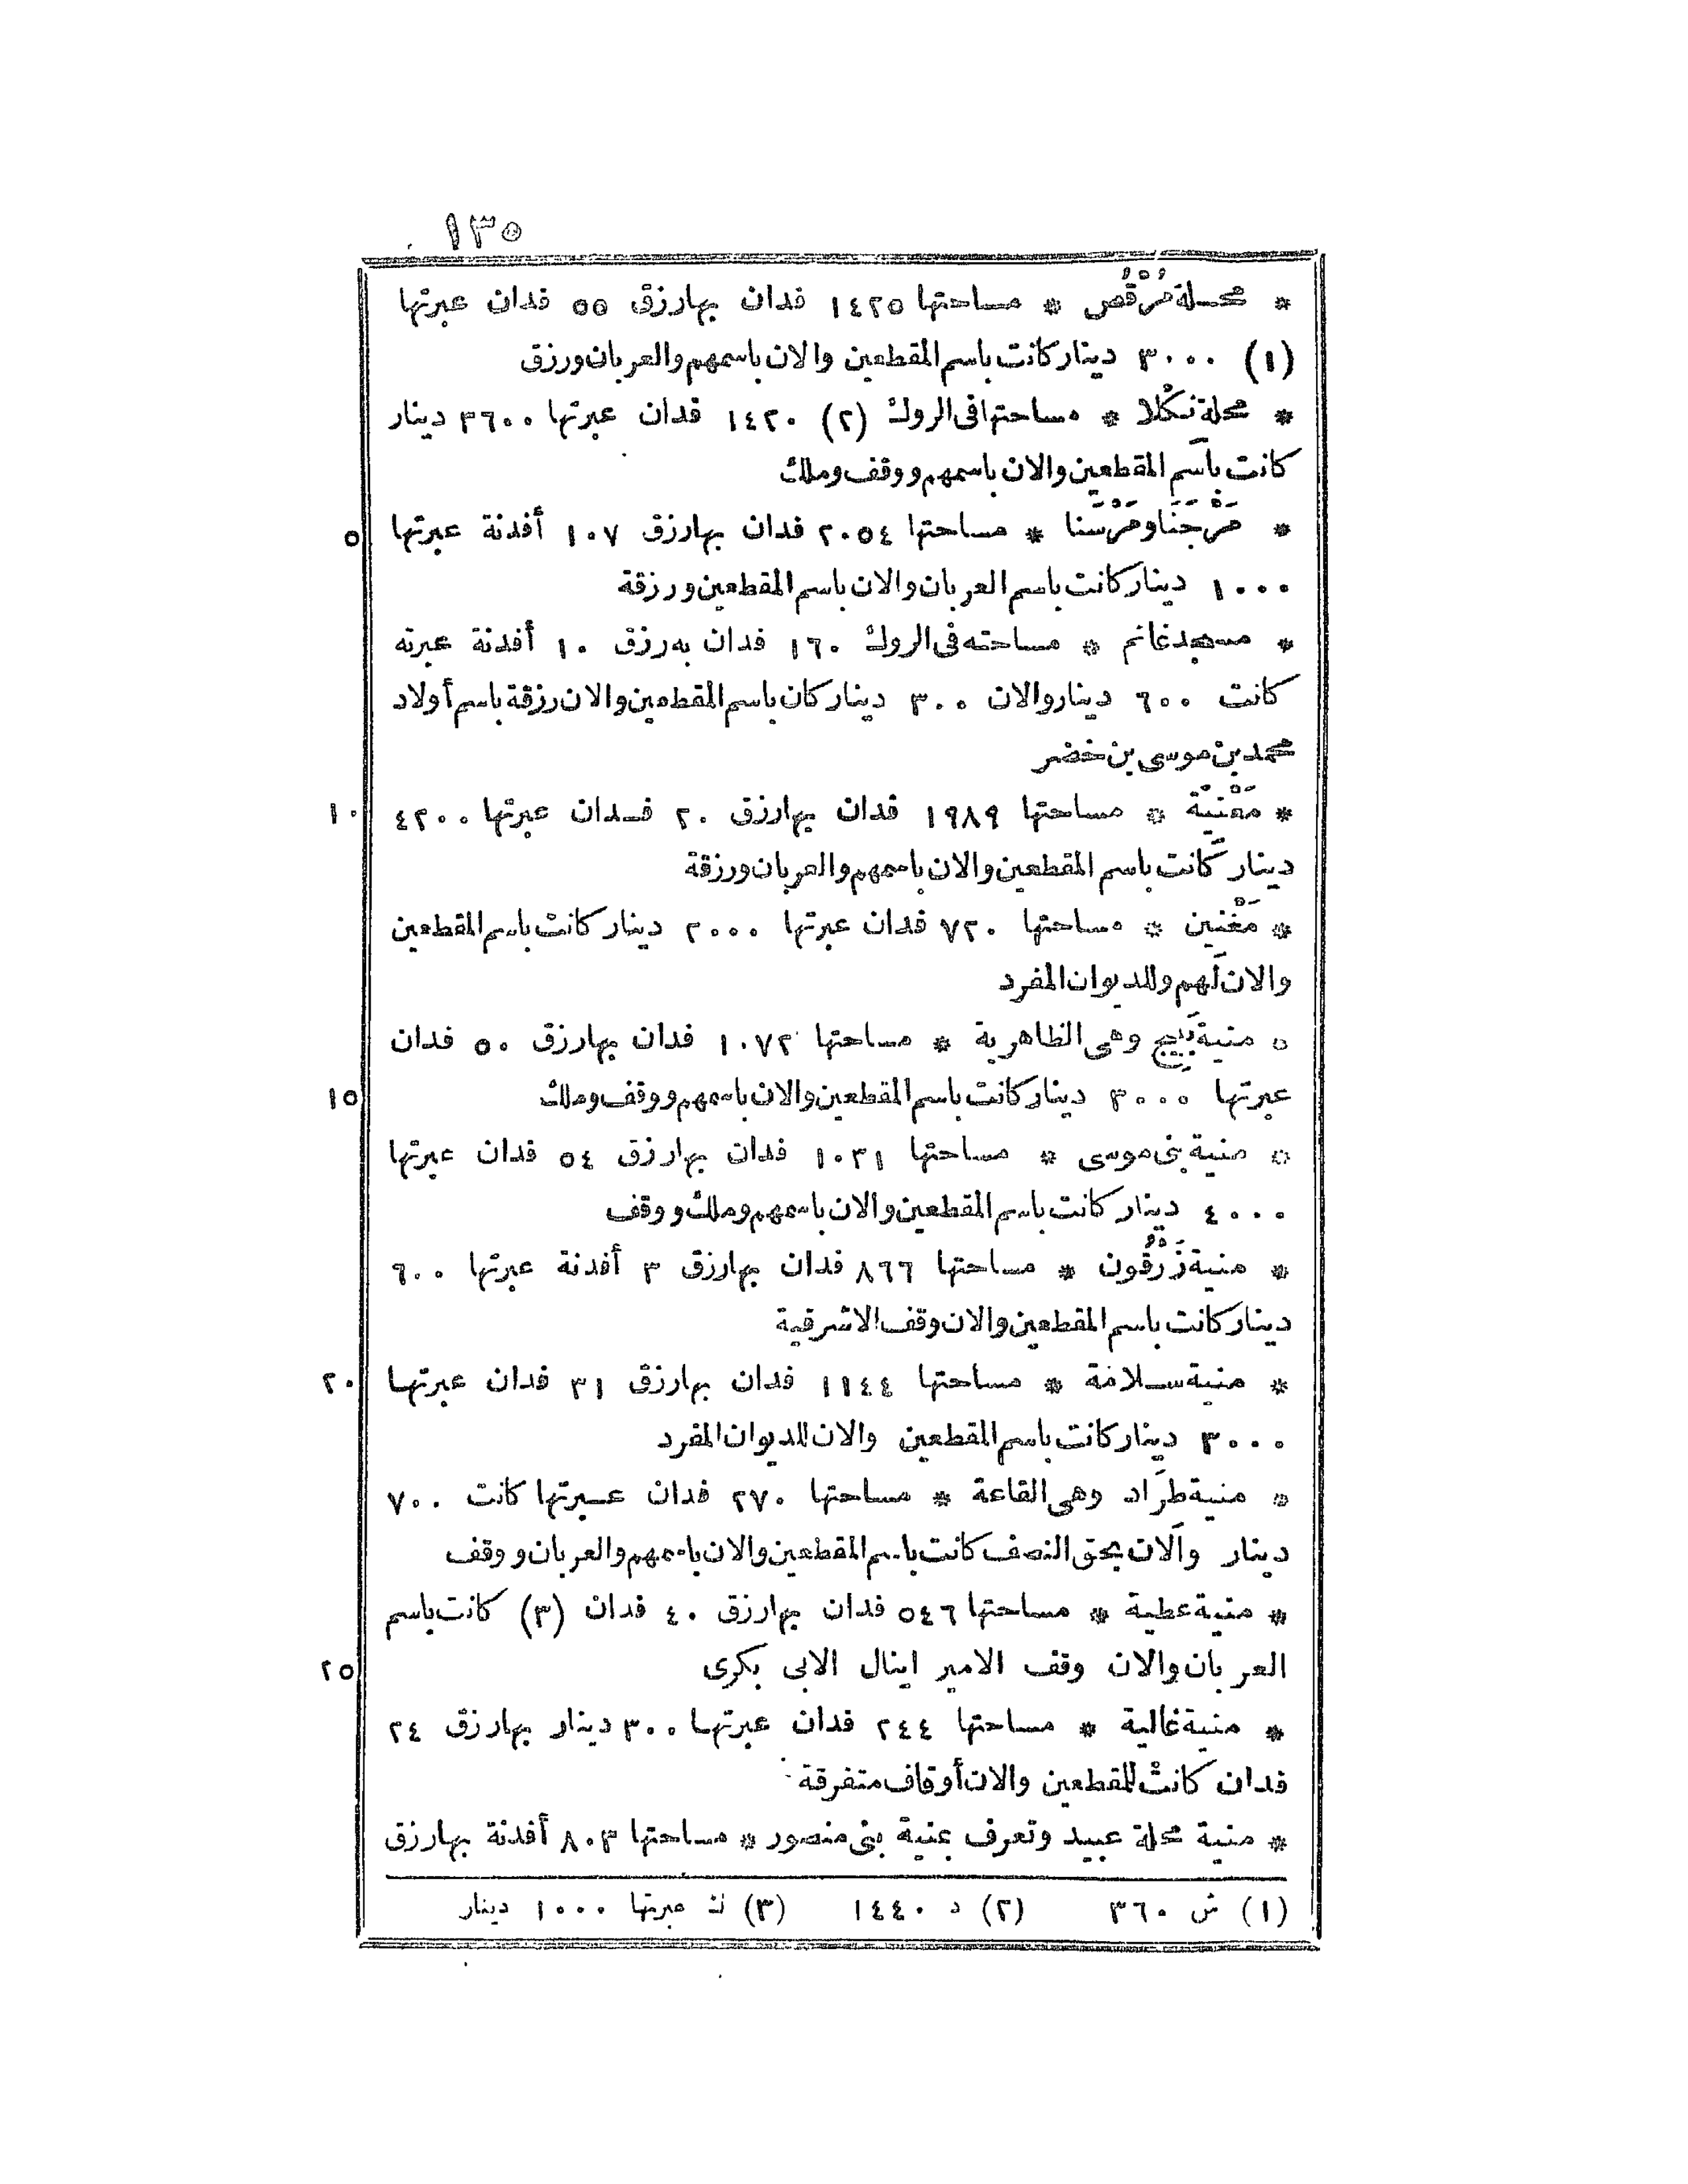 ١٣٥
* محلة مُرْقُص * مساحتها ١٤٢٥ فدان بها رزق ٥٥ فدان عبرتها
(١) ٣٠٠٠ دينار كانت باسم المقطعين والان باسمهم والعربان ورزق
* محلة نكْلا * مساحتها فى الروك (٢) ١٤٢٠ فدان عبرتها ٣٦٠٠ دينار
كانت باسم المقطعين والان باسمهم ووقف وملك
٥ * مَرْجَنَا ومَرْسَنا * مساحتها ٢٠٥٤ فدان بها رزق ١٠٧ أفدنة عبرتها
١٠٠٠ دينار كانت باسم العربان والان باسم المقطعين ورزقة
* مسجد غانم * مساحته فى الروك ١٦٠ فدان به رزق ١٠ أفدنة عبرته
كانت ٦٠٠ دينار والان ٣٠٠ دينار كان باسم المقطعين والان رزقة باسم أولاد
محمد بن موسى بن خضر
١٠ * مَغْنِيَّة * مساحتها ١٩٨٩ فدان بها رزق ٢٠ فدان عبرتها ٤٢٠٠
دينار كانت باسم المقطعين والان باسمهم والعربان ورزقة
* مَغْنين * مساحتها ٧٢٠ فدان عبرتها ٢٠٠٠ دينار كانت باسم المقطعين
والان لهم وللديوان المفرد
* منية بَيِيج وهى الظاهرية * مساحتها ١٠٧٢ فدان بها رزق ٥٠ فدان
١٥ عبرتها ٣٠٠٠ دينار كانت باسم المقطعين والان باسمهم ووقف وملك
* منية بنى موسى * مساحتها ١٠٣١ فدان بها رزق ٥٤ فدان عبرتها
٤٠٠٠ دينار كانت باسم المقطعين والان باسمهم وملك ووقف
* منية زَرْقُون * مساحتها ٨٦٦ فدان بها رزق ٣ أفدنة عبرتها ٦٠٠
دينار كانت باسم المقطعين والان وقف الاشرفية
٢٠ * منية سلامة * مساحتها ١١٤٤ فدان بها رزق ٣١ فدان عبرتها
٣٠٠٠ دينار كانت باسم المقطعين والان للديوان المفرد
* منية طرَاد وهى القاعة * مساحتها ٢٧٠ فدان عبرتها كانت ٧٠٠
دينار والان بحق النصف كانت باسم المقطعين والان باسمهم والعربان ووقف
* منية عطية * مساحتها ٥٤٦ فدان بها رزق ٤٠ فدان (٣) كانت باسم
٢٥ العربان والان وقف الامير اينال الابى بكرى
* منية غالية * مساحتها ٢٤٤ فدان عبرتها ٣٠٠ دينار بها رزق ٢٤
فدان كانت للمقطعين والان أوقاف متفرقة
* منية محلة عبيد وتعرف بمنية بنى منصور * مساحتها ٨٠٣ أفدنة بها رزق
(١) ش ٣٦٠ (٢) د ١٤٤٠ (٣) ك عبرتها ١٠٠٠ دينار